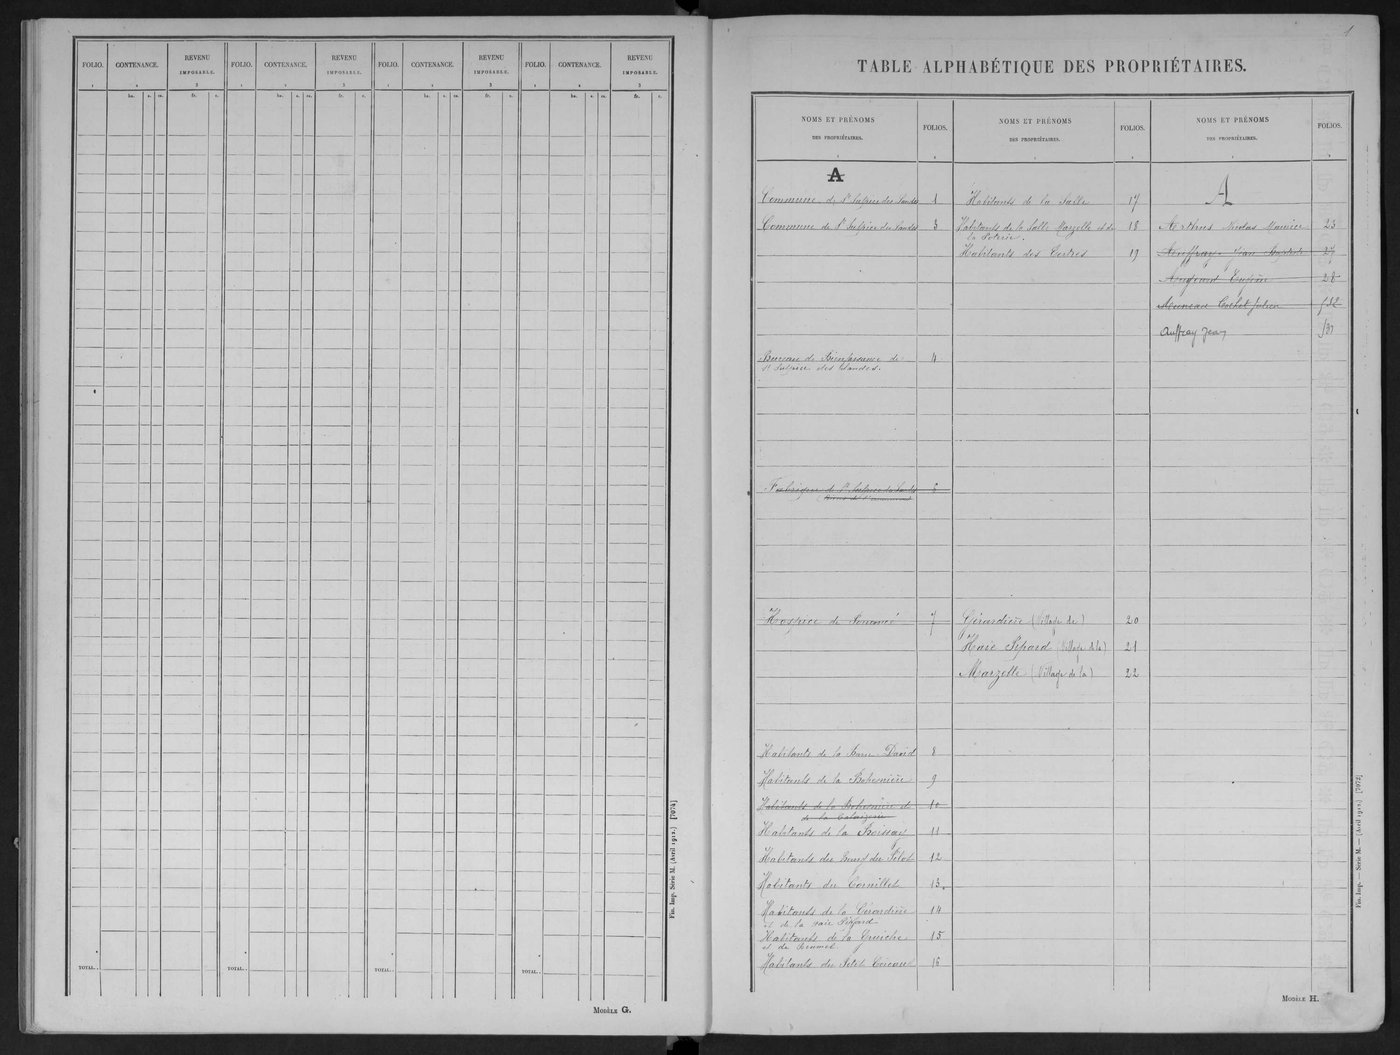 FOLIO. CONTENANCE. REVENU IMPOSABLE. FOLIO. CONTENANCE. REVENU IMPOSABLE. FOLIO. CONTENANCE. REVENU IMPOSABLE. FOLIO. CONTENANCE. REVENU IMPOSABLE.
1 2 3 1 2 3 1 2 3 1 2 3
ha. a. ca. fr. c. ha. a. ca. fr. c. ha. a. ca. fr. c. ha. a. ca. fr. c.
TOTAL. TOTAL. TOTAL. TOTAL.
Fin. Imp. Série M. (Avril 1912.) [7071]
MODÈLE G.
1
TABLE ALPHABÉTIQUE DES PROPRIÉTAIRES.
NOMS ET PRÉNOMS
DES PROPRIÉTAIRES.
FOLIOS.
A
Commune de St Sulpice des Landes 1
Commune de St Sulpice des Landes 3
Bureau de Bienfaisance de 4
St Sulpice des Landes.
Fabrique de St Sulpice des Landes 5
Hospice de Pouancé 7
Habitants de la Barre David 8
Habitants de la Bohernière 9
Habitants de la Bohernière et 10
de la
Habitants de la Boissay 11
Habitants du Bourg du Pilot 12
Habitants du Cornillet 13.
Habitants de la Gérardière 14
et de la haie Pipard
Habitants de la Gruiche 15
et de
Habitants du Petit Coreau 16
NOMS ET PRÉNOMS
DES PROPRIÉTAIRES.
FOLIOS.
Habitants de la Salle 17
Habitants de la Salle Marzelle et de 18
la Poterie.
Habitants des Tertres 19
Gérardière (Village de) 20
Haie Pipard (Village de la) 21
Marzelle (Village de la) 22
NOMS ET PRÉNOMS
DES PROPRIÉTAIRES.
FOLIOS.
A
Arthus Nicolas Maurice 23
Auffray Jean Baptiste 27
28
Cochet Julien 132
Auffray Jean
Fin. Imp. — Série M. — (Avril 1912.) [7072]
MODÈLE H.